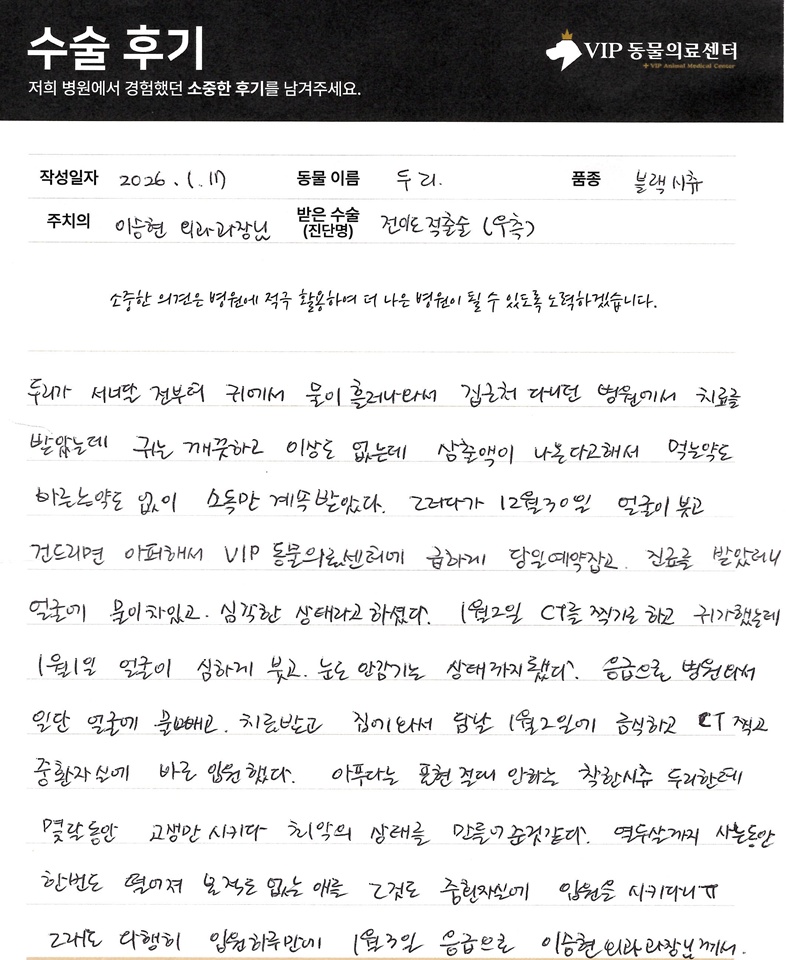 수술 후기
VIP 동물의료센터
+ VIP Animal Medical Center
저희 병원에서 경험했던 소중한 후기를 남겨주세요.
작성일자 2026. 1. 17 동물 이름 두리. 품종 블랙시츄
주치의 이승현 외과과장님 받은 수술 (진단명) 전이도적출술 (우측)
소중한 의견은 병원에 적극 활용하여 더 나은 병원이 될 수 있도록 노력하겠습니다.
두리가 서너달 전부터 귀에서 물이 흘러나와서 집근처 다니던 병원에서 치료를
받았는데 귀는 깨끗하고 이상도 없는데 삼출액이 나온다고해서 먹는약도
바르는약도 없이 소독만 계속 받았다. 그러다가 12월30일 얼굴이 붓고
건드리면 아퍼해서 VIP 동물의료센터에 급하게 당일예약잡고. 진료를 받았더니
얼굴에 물이차있고. 심각한 상태라고 하셨다. 1월2일 CT를 찍기로 하고 귀가했는데
1월1일 얼굴이 심하게 붓고. 눈도 안감기는 상태까지됐다. 응급으로 병원와서
일단 얼굴에 물빼고. 치료받고 집에와서 담날 1월2일에 금식하고 CT 찍고
중환자실에 바로 입원했다. 아푸다는 표현 절대 안하는 착한시츄 두리한테
몇달동안 고생만 시키다 최악의 상태를 만들어준것같다. 열두살까지 사는동안
한번도 떨어져 본적도 없는 애를 그것도 중환자실에 입원을 시키다니ㅠ
그래도 다행히 입원하루만에 1월3일 응급으로 이승현외과과장님께서.